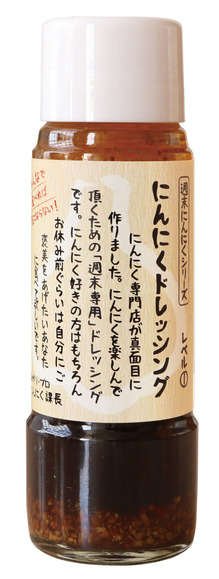 週末にんにくシリーズ レベル①
にんにくドレッシング
にんにく専門店が真面目に
作りました。にんにくを楽しんで
頂くための「週末専用」ドレッシング
です。にんにく好きの方はもちろん
お休み前ぐらいは自分にご
褒美をあげたいあなた
んにく課長
んなで
べれば